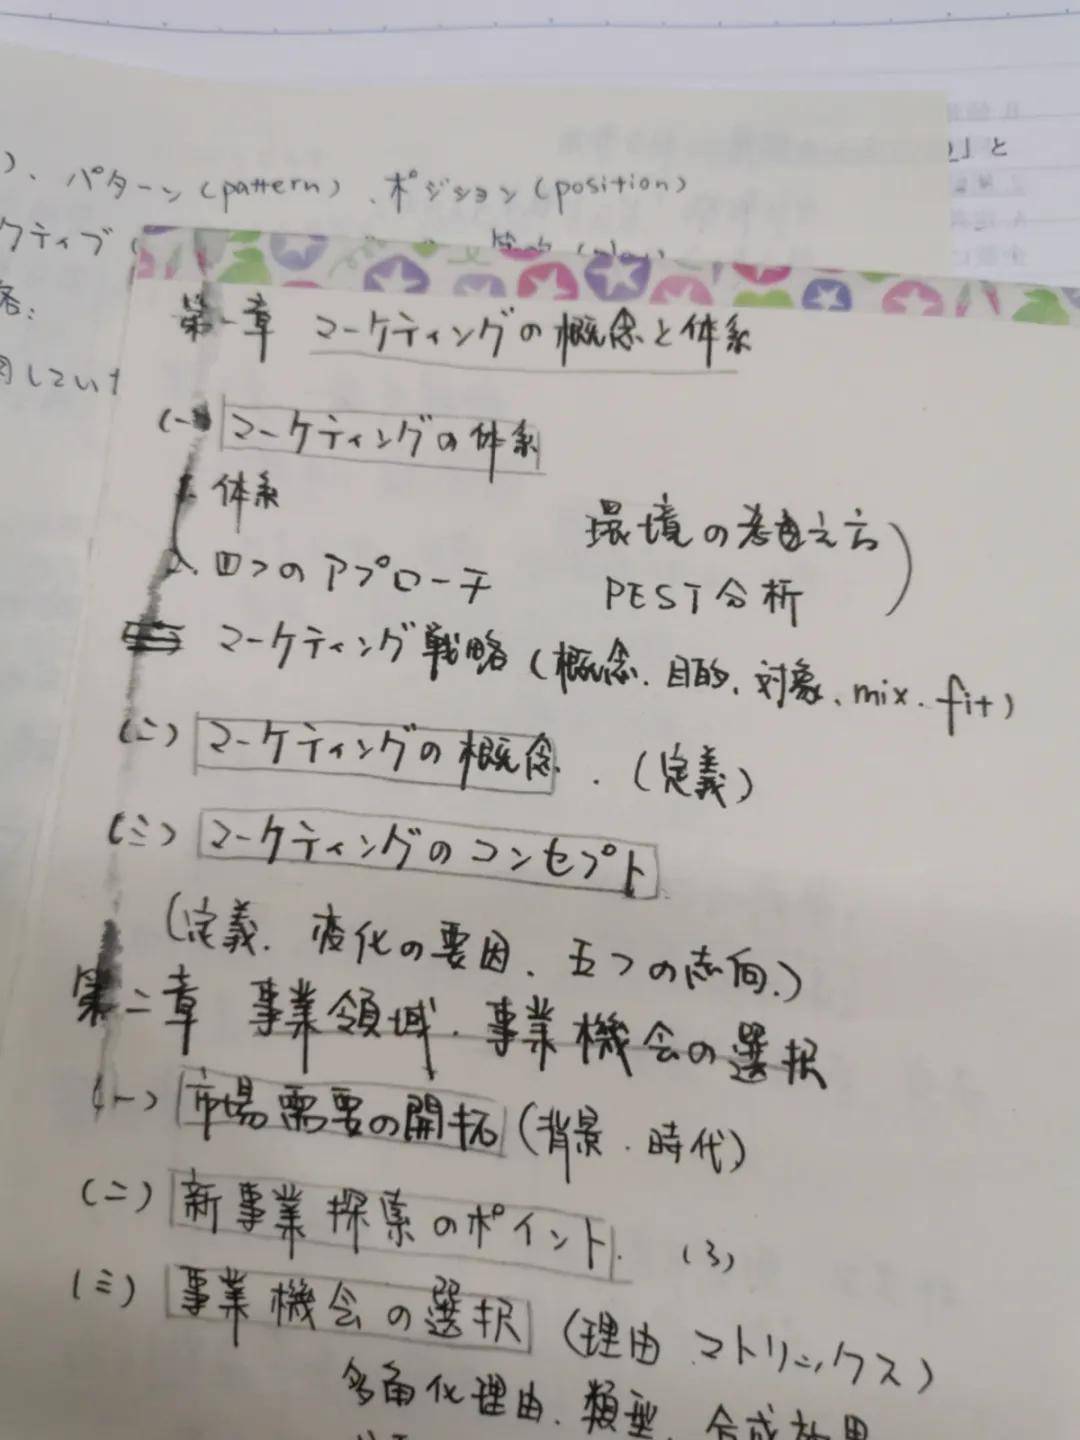 」と
)、パターン(pattern)、ポジション(position)
クティブ
第一章 マーケティングの概念と体系
(一) マーケティングの体系
1. 体系
環境の考え方)
2. 四つのアプローチ
PEST分析
マーケティング戦略(概念、目的、対象、mix.fit)
(二) マーケティングの概念.(定義)
(三) マーケティングのコンセプト
(定義、変化の要因、五つの志向)
第二章 事業領域、事業機会の選択
(一) 市場需要の開拓(背景、時代)
(二) 新事業探索のポイント.(3)
(三) 事業機会の選択(理由、マトリックス)
多角化理由、類型、合成効果